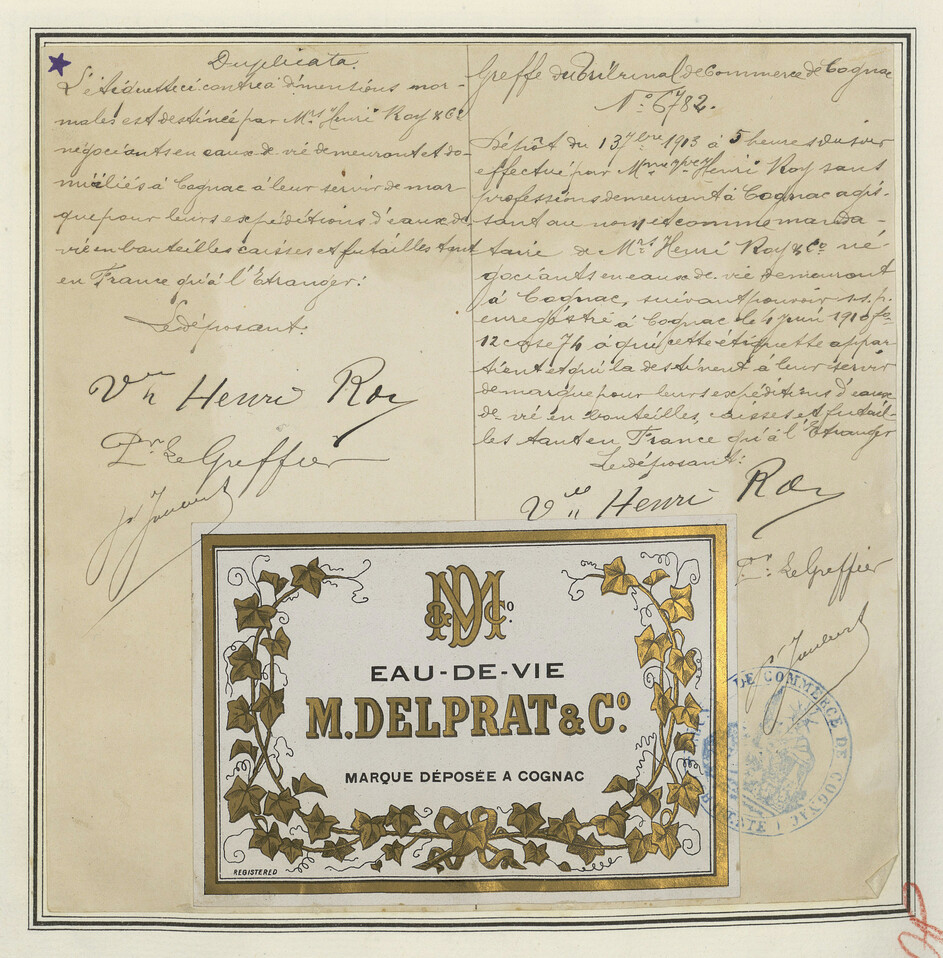 Duplicata.
L'étiquette ci contre à dimensions nor-
males est destinée par Mrs Henri Roy & Cº
négociants en eaux de vie demeurant et do-
miciliés à Cognac à leur servir de mar-
que pour leurs expéditions d'eaux de
vie en bouteilles caisses et futailles tant
en France qu'à l'Etranger.
Le déposant.
Vve Henri Roy
Pr. Le Greffier
Greffe du Tribunal de Commerce de Cognac
Nº 6782.
Dépôt du 13 7bre 1913 à 5 heures du soir
effectué par Mme Vve Henri Roy sans
profession demeurant à Cognac agis-
sant au nom et comme manda-
taire de Mrs Henri Roy & Cº né-
gociants en eaux de vie demeurant
à Cognac, suivant pouvoir s.s.p.
enregistré à Cognac le 4 Juin 1910 fo
12 case 74 à qui cette étiquette appar-
tient et qui la destinent à leur servir
de marque pour leurs expéditions d'eaux
de vie en bouteilles, caisses et futail-
les tant en France qu'à l'Etranger
Le déposant:
Vve Henri Roy
Pr. Le Greffier
MD & Cº.
EAU-DE-VIE
M. DELPRAT & Cº.
MARQUE DÉPOSÉE A COGNAC
REGISTERED
DE COMMERCE DE COGNAC